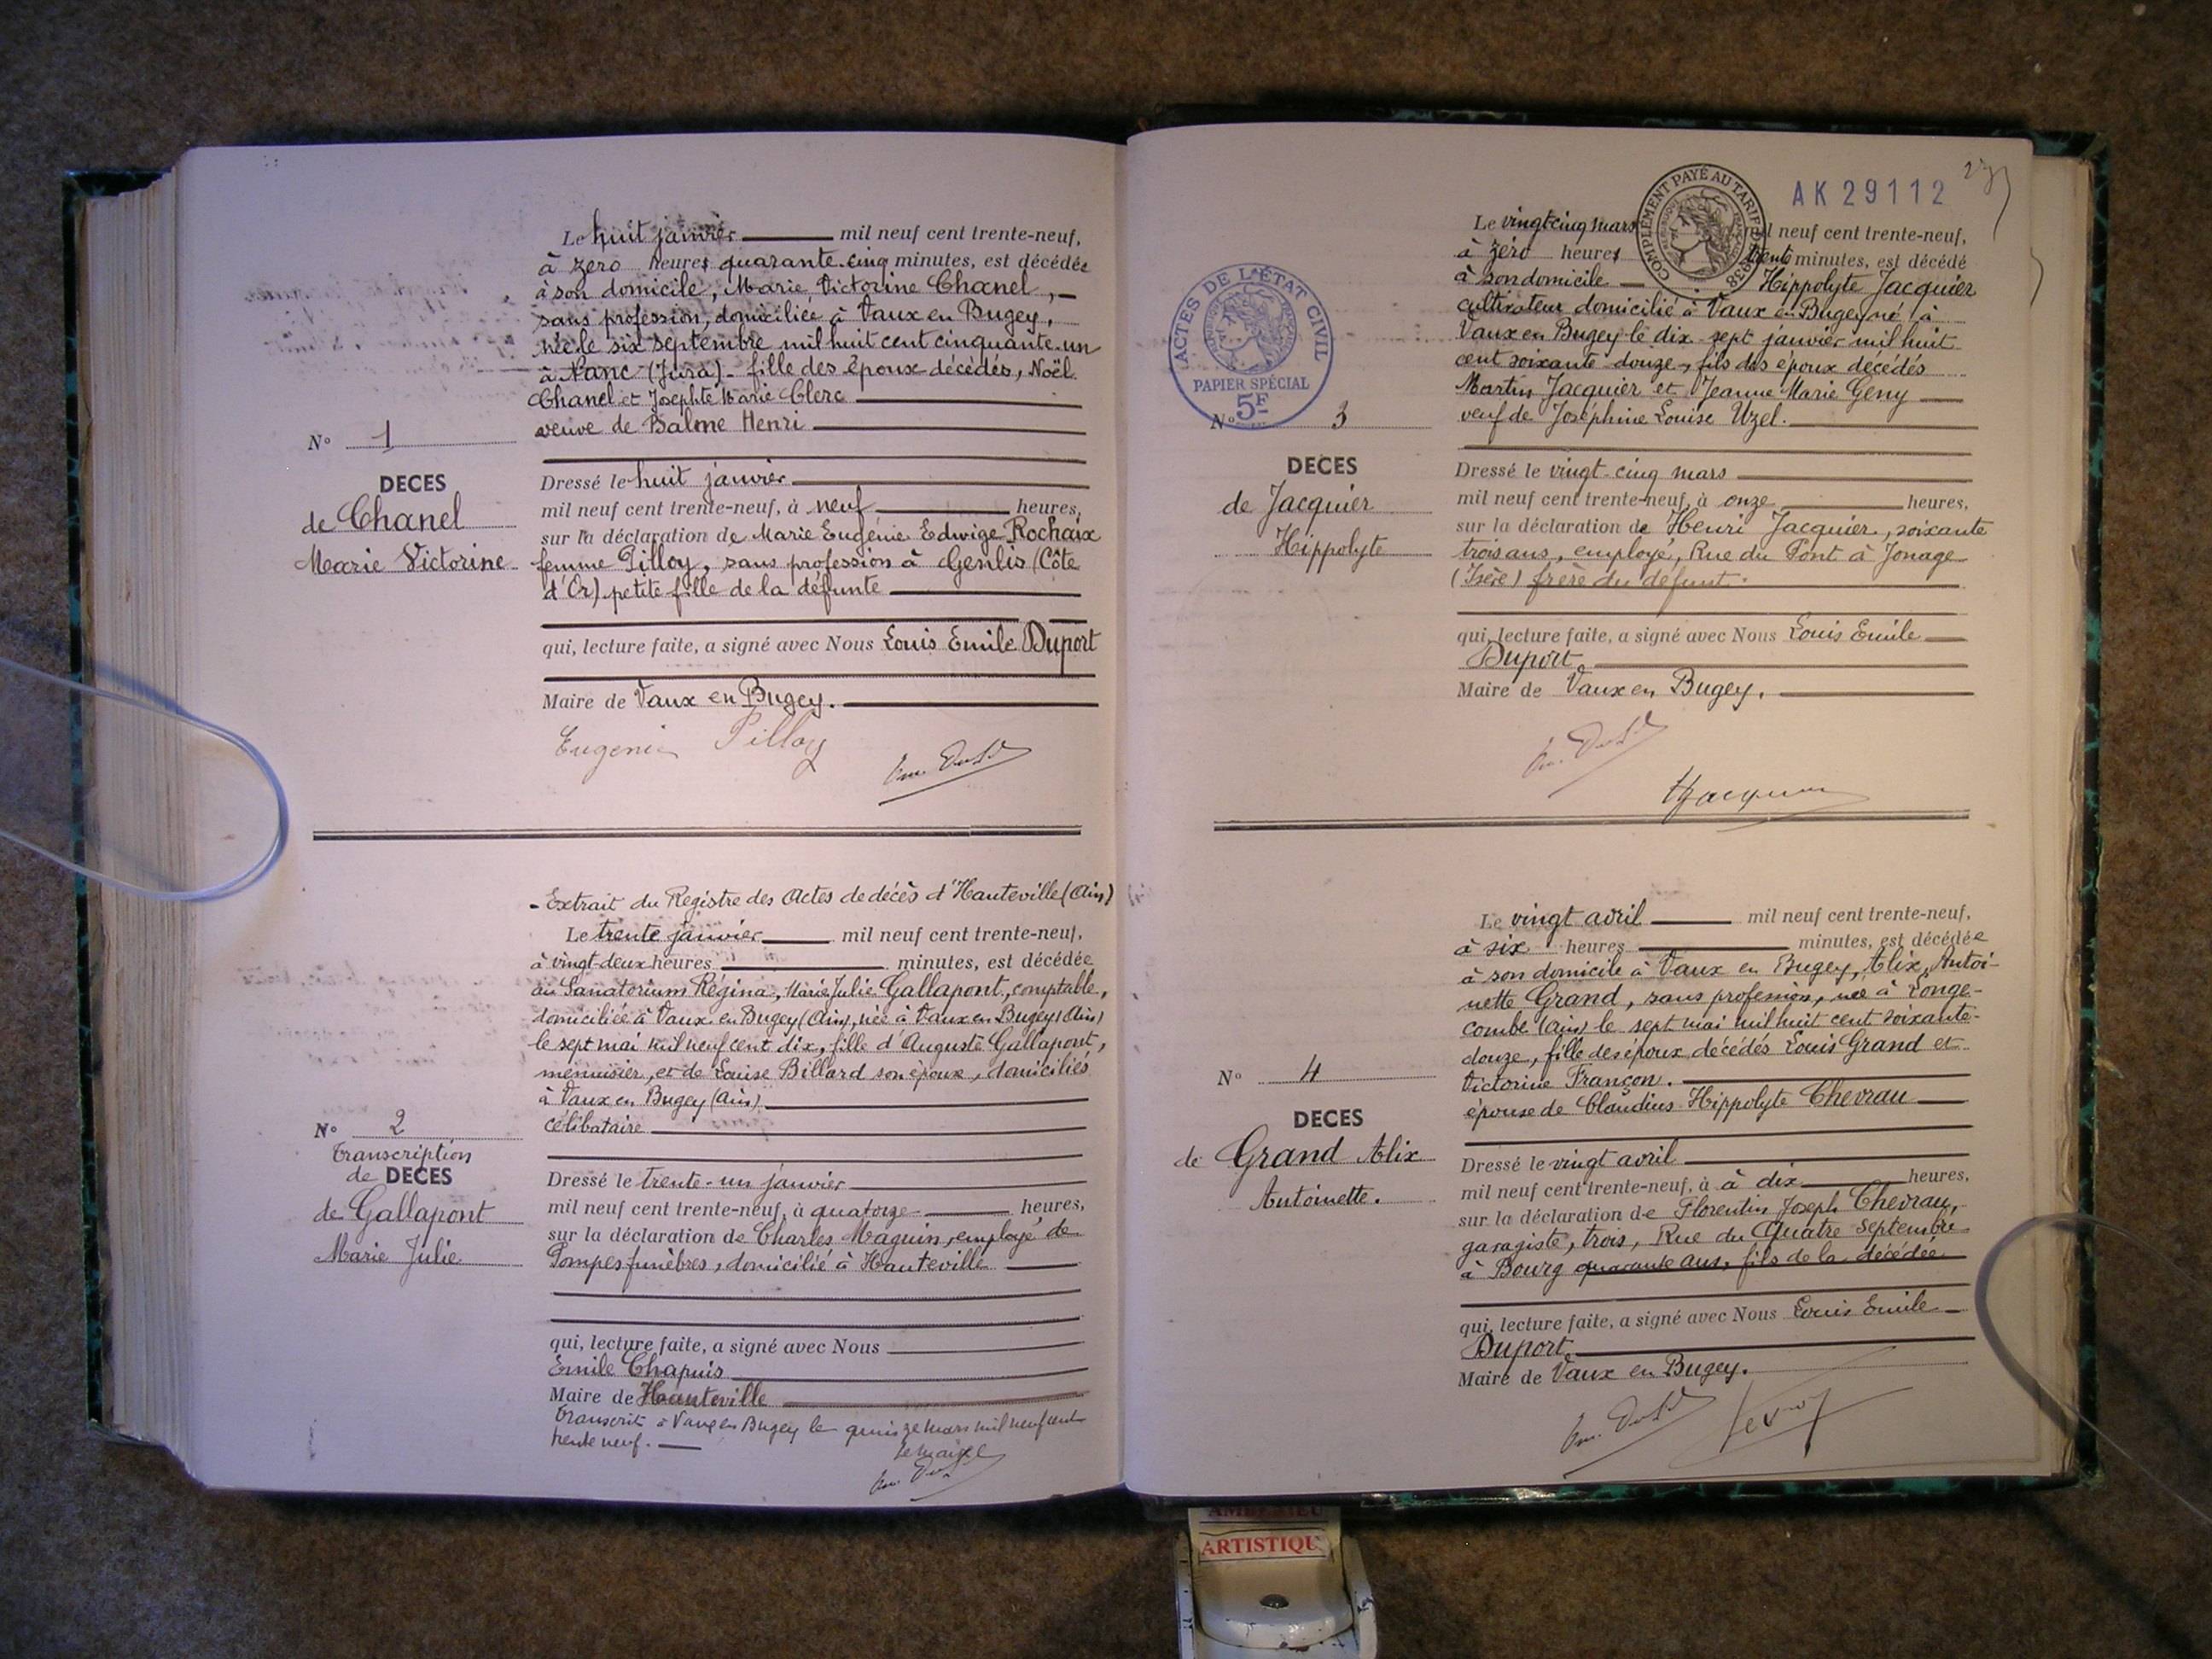 Le huit janvier mil neuf cent trente-neuf,
à zero heures quarante-cinq minutes, est décédée
à son domicile, Marie Victorine Chanel,
sans profession, domiciliée à Vaux en Bugey,
née le six septembre mil huit cent cinquante-un
à Nanc (Jura) fille des époux décédés, Noël
Chanel et Josephte Marie Clerc
veuve de Balme Henri
N° 1
DECES
de Chanel
Marie Victorine
Dressé le huit janvier
mil neuf cent trente-neuf, à neuf heures,
sur la déclaration de Marie Eugénie Edwige Rochaix
femme Pilloy, sans profession à Genlis (Côte
d'Or) petite fille de la défunte
qui, lecture faite, a signé avec Nous Louis Emile Duport
Maire de Vaux en Bugey.
Eugenie Pilloy
- Extrait du Registre des Actes de décès d'Hauteville (Ain)
Le trente janvier mil neuf cent trente-neuf,
à vingt-deux heures minutes, est décédée
au Sanatorium Régina, Marie Julie Gallapont, comptable,
domiciliée à Vaux en Bugey (Ain), née à Vaux en Bugey (Ain)
le sept mai mil neuf cent dix, fille d'Auguste Gallapont,
menuisier, et de Louise Billard son épouse, domiciliés
à Vaux en Bugey (Ain)
célibataire
N° 2
Transcription
de DECES
de Gallapont
Marie Julie
Dressé le trente-un janvier
mil neuf cent trente-neuf, à quatorze heures,
sur la déclaration de Charles Maguin, employé de
Pompes funèbres, domicilié à Hauteville
qui, lecture faite, a signé avec Nous
Emile Chapuis
Maire de Hauteville
Transcrit à Vaux en Bugey le quinze mars mil neuf cent
trente neuf.
le maire
AK 29112
COMPLÉMENT PAYÉ AU TARIF DE 1938
Le vingt-cinq mars mil neuf cent trente-neuf,
à zéro heures trente minutes, est décédé
à son domicile Hippolyte Jacquier
cultivateur domicilié à Vaux en Bugey né à
Vaux en Bugey le dix-sept janvier mil huit
cent soixante-douze, fils des époux décédés
Martin Jacquier et Jeanne Marie Geny
veuf de Joséphine Louise Uzel.
ACTES DE L'ÉTAT CIVIL
PAPIER SPÉCIAL
5F
N° 3
DECES
de Jacquier
Hippolyte
Dressé le vingt-cinq mars
mil neuf cent trente-neuf, à onze heures,
sur la déclaration de Henri Jacquier, soixante
trois ans, employé, Rue du Pont à Jonage
(Isère) frère du défunt.
qui, lecture faite, a signé avec Nous Louis Emile
Duport
Maire de Vaux en Bugey.
HJacquier
Le vingt avril mil neuf cent trente-neuf,
à six heures minutes, est décédée
à son domicile à Vaux en Bugey, Alix, Antoi-
nette Grand, sans profession, née à Longe-
combe (Ain) le sept mai mil huit cent soixante-
douze, fille des époux décédés Louis Grand et
Victorine Françon.
épouse de Claudius Hippolyte Chevrau
N° 4
DECES
de Grand Alix
Antoinette.
Dressé le vingt avril
mil neuf cent trente-neuf, à à dix heures,
sur la déclaration de Florentin Joseph Chevrau,
garagiste, trois, Rue du Quatre Septembre
à Bourg quarante ans, fils de la décédée
qui, lecture faite, a signé avec Nous Louis Emile
Duport
Maire de Vaux en Bugey.
ARTISTIQU